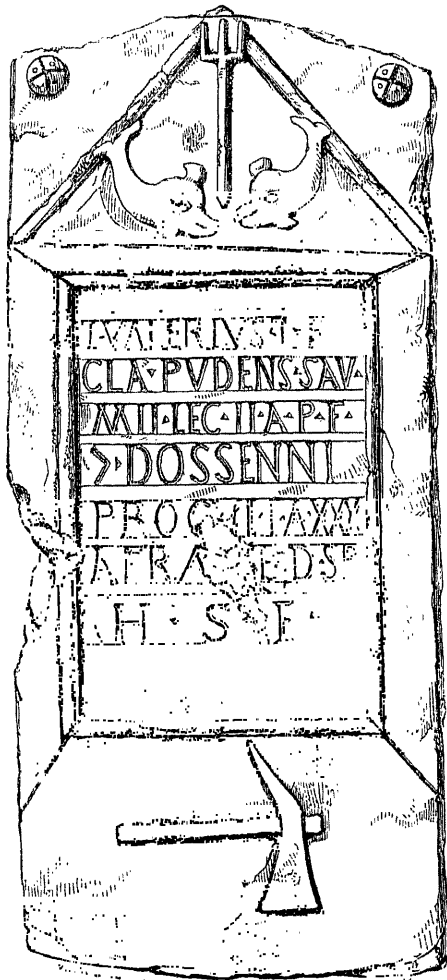 T·VALERIVS·T·F
CLA·PVDENS·SAV·
MIL·LEG·II·A·P·F·
>·DOSSENNI
PROC LI·A·XXX
AERA D·SP
H·S·E·